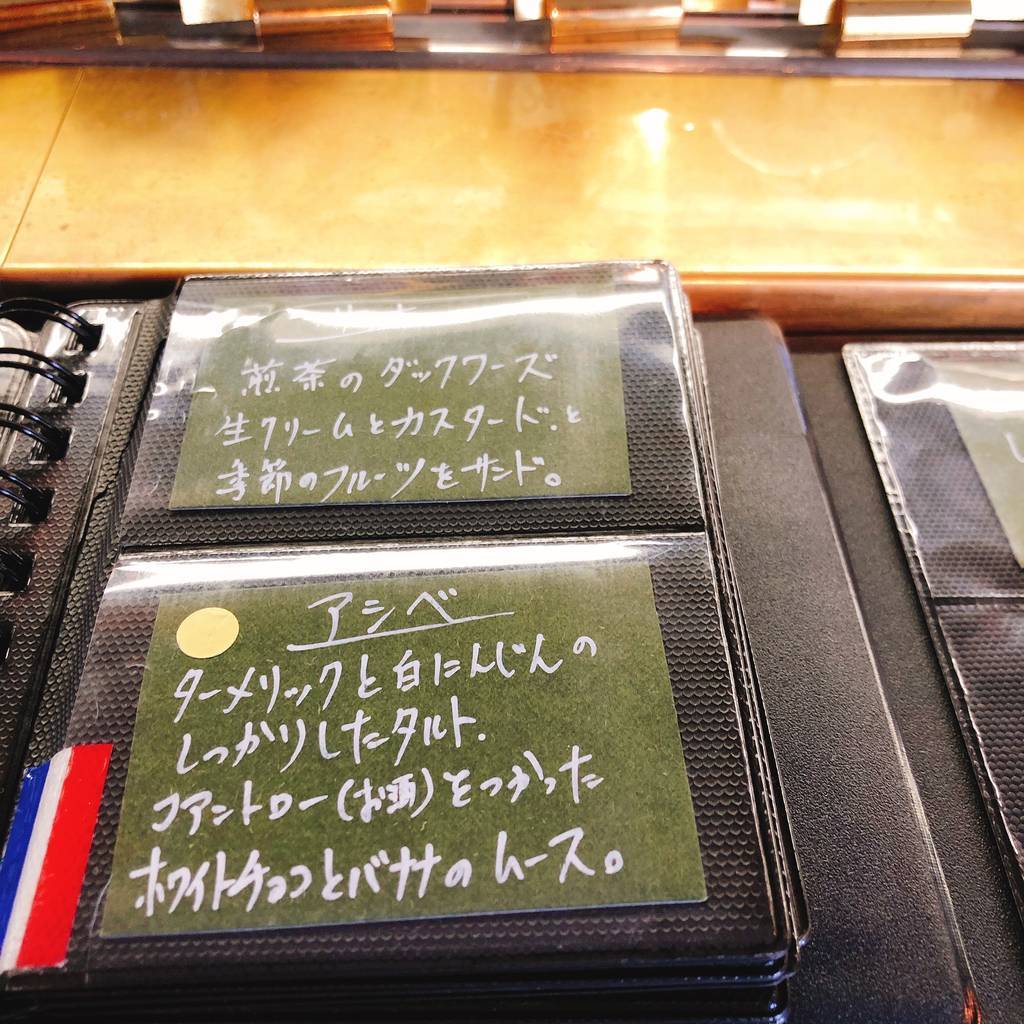 煎茶のダックワーズ
生クリームとカスタード.と
季節のフルーツをサンド。
アシベ
ターメリックと白にんじんの
しっかりしたタルト.
コアントロー(お酒)をつかった
ホワイトチョコとバナナのムース。